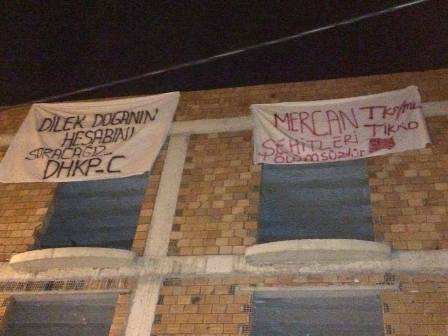 DİLEK DOĞANIN
HESABINI
SORACAĞIZ
DHKP-C
MERCAN
ŞEHİTLERİ
ÖLÜMSÜZDÜR
TKP/ML
TİKKO